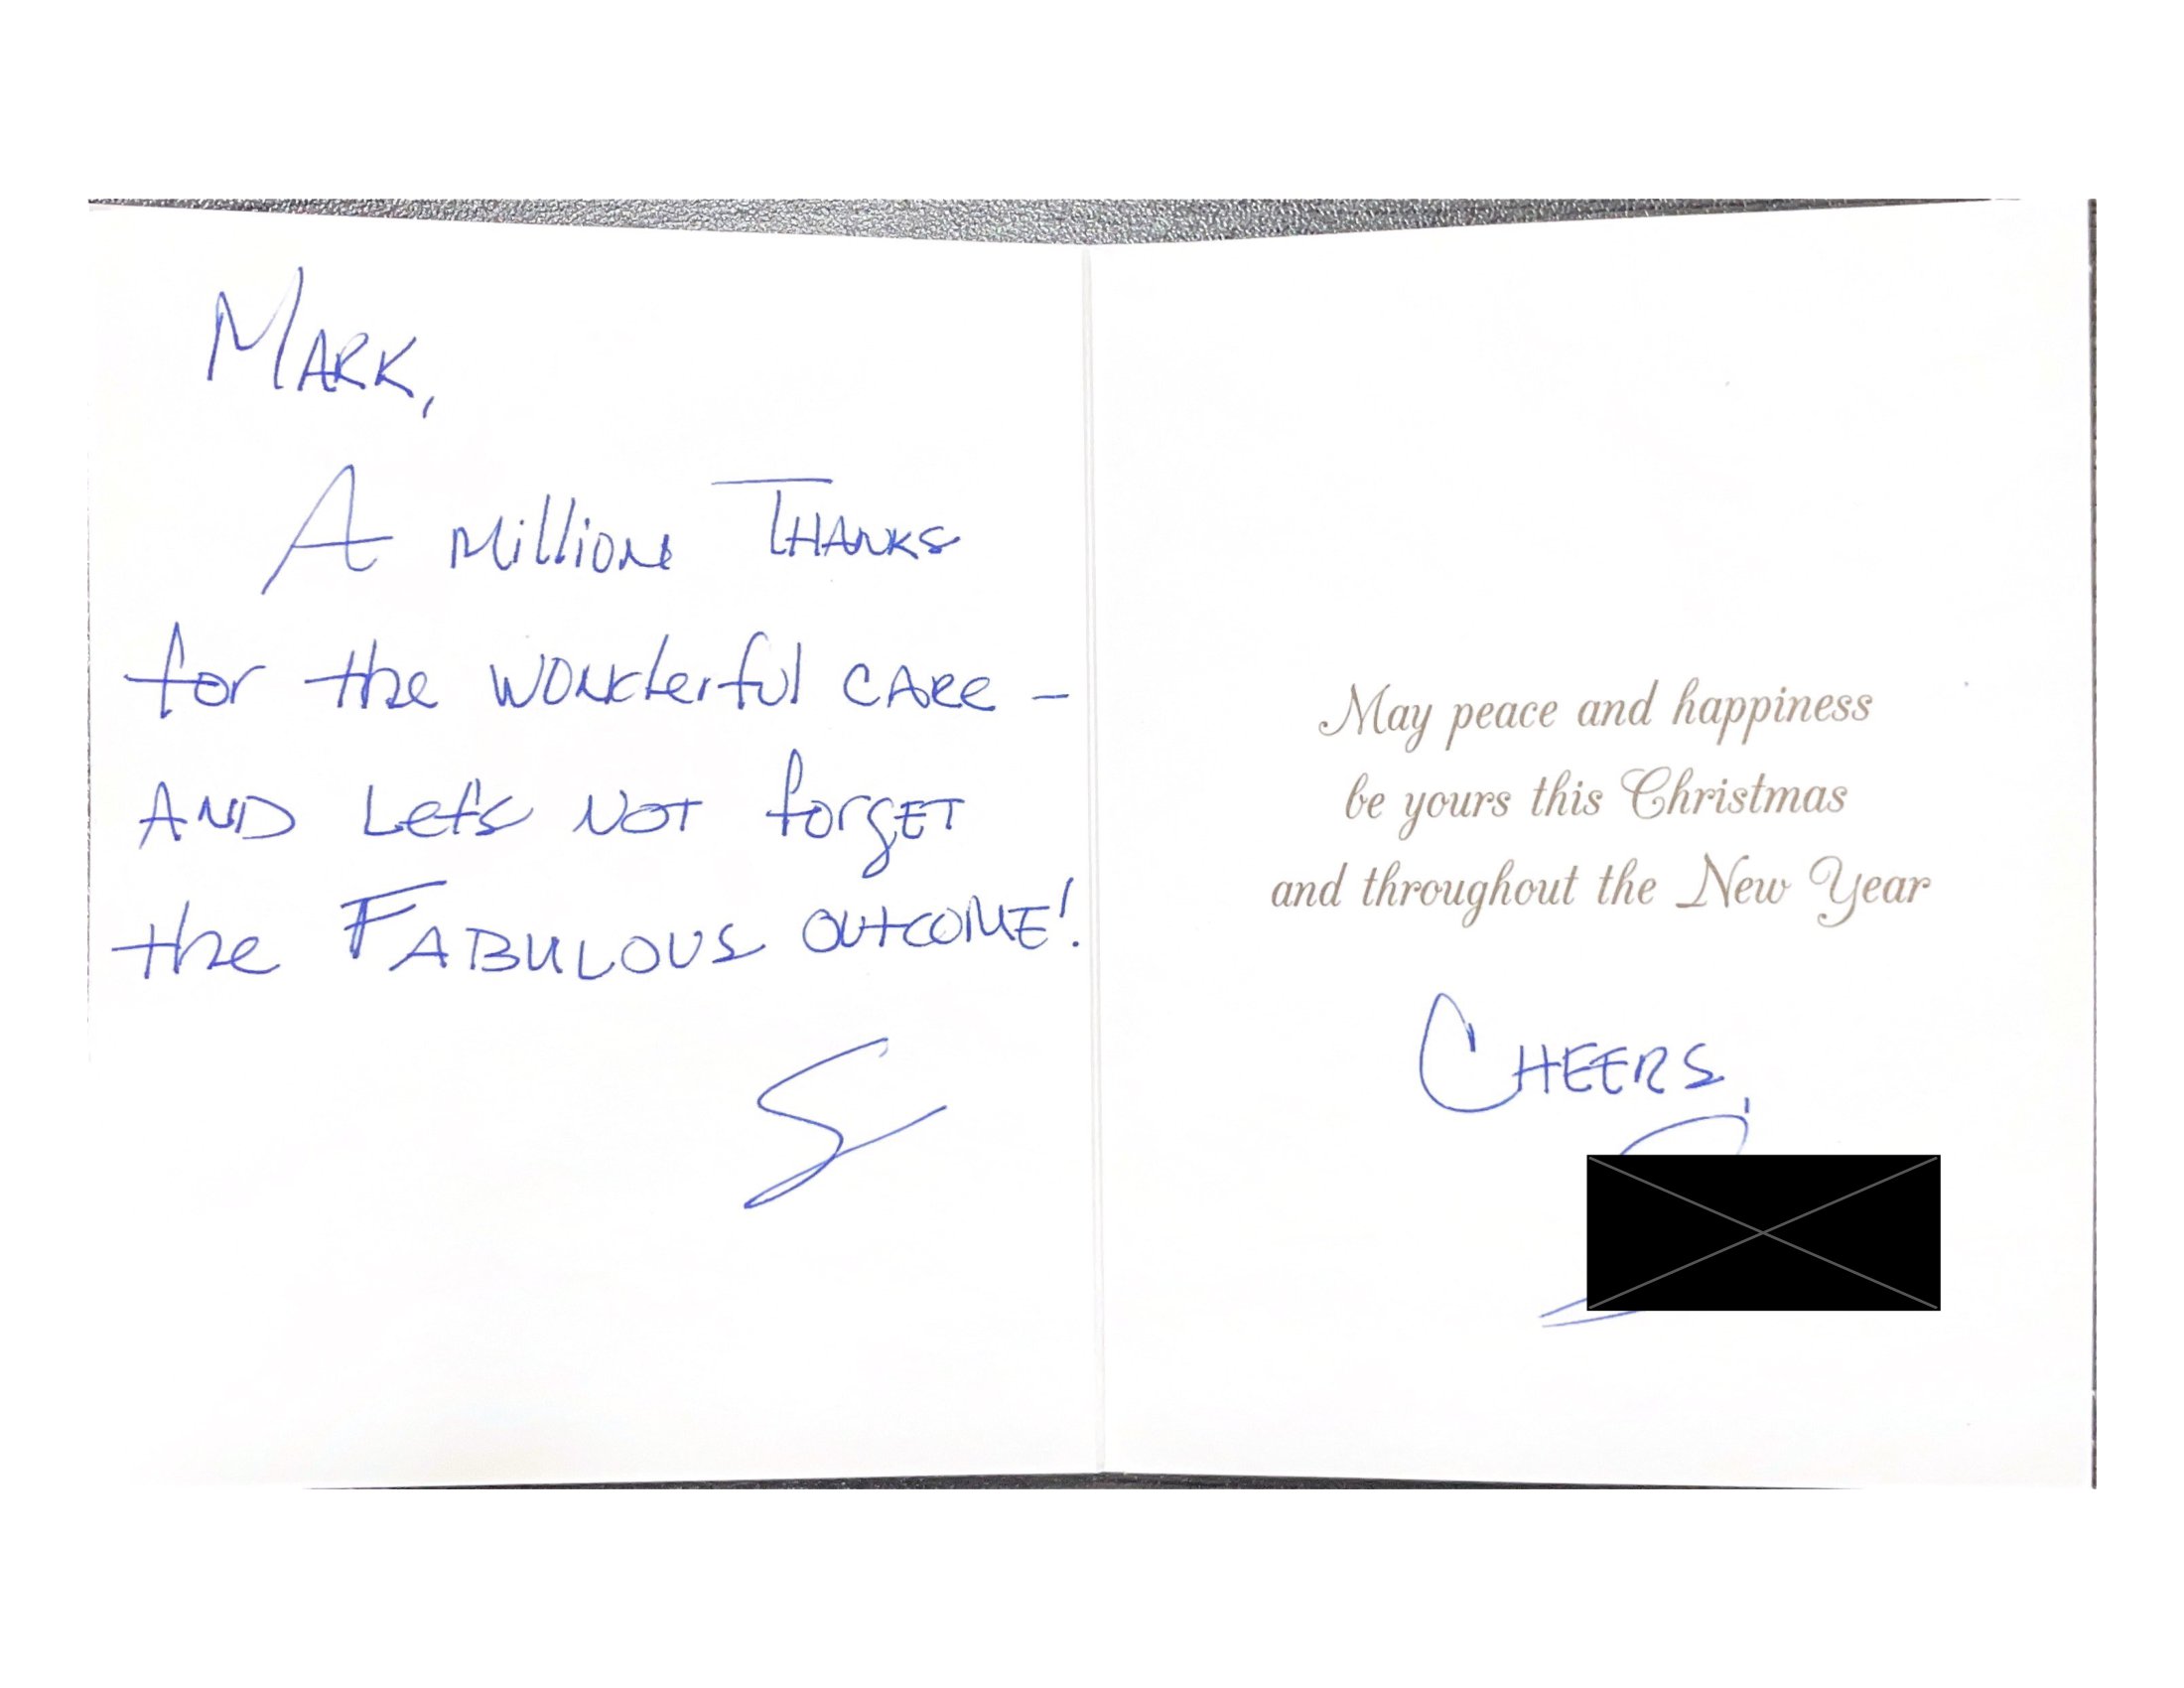 MARK,
A Million THANKS
for the wonderful CARE –
AND Let's NOT forGET
the FABULOUS OUTCOME!
S
May peace and happiness
be yours this Christmas
and throughout the New Year
CHEERS,